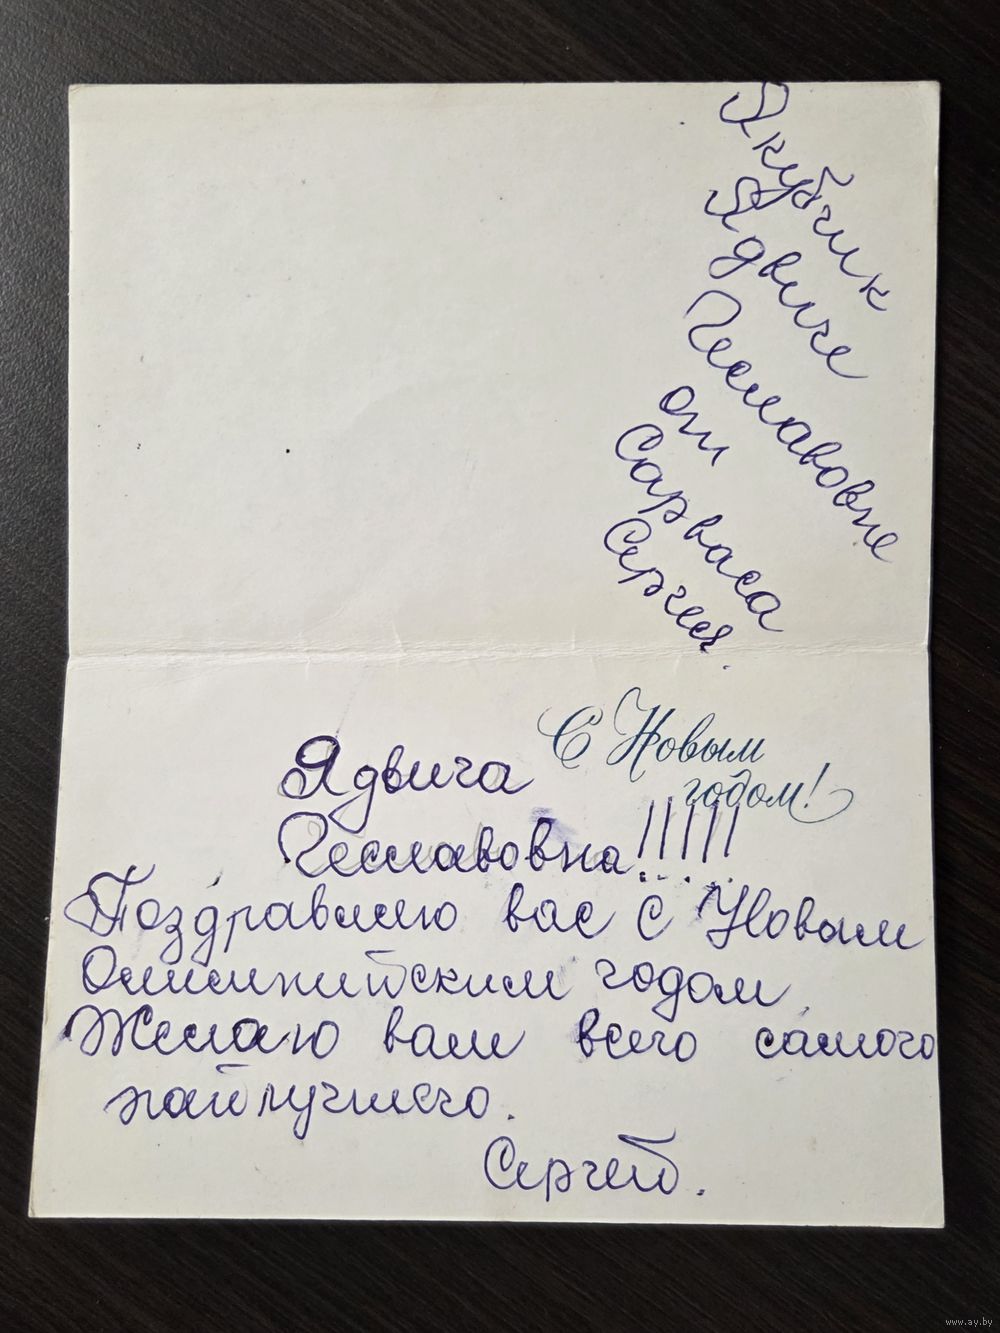 Якубчик
Ядвиче
Чеславовне
от
Сарваса
Сергея.
С Новым
годом!
Ядвига
Чеславовна!!!!!
Поздравляю вас с Новым
Олимпийским годом
Желаю вам всего самого
найлучшего.
Сергей.
www.ay.by